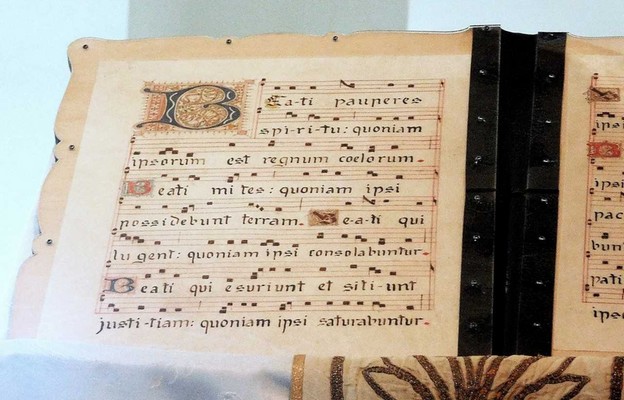 Bea-ti pauperes
spi-ri-tu: quoniam
ipsorum est regnum coelorum.
Beati mites: quoniam ipsi
possidebunt terram. Be-a-ti qui
lugent: quoniam ipsi consolabuntur.
Beati qui esuriunt et siti-unt
justi-tiam: quoniam ipsi saturabuntur.
ipsi
pac
bun
pati
ipso